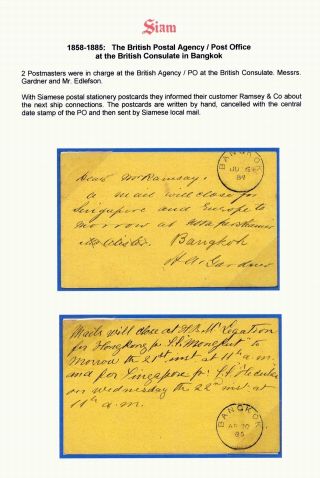 Siam
1858-1885: The British Postal Agency / Post Office
at the British Consulate in Bangkok
2 Postmasters were in charge at the British Agency / PO at the British Consulate. Messrs.
Gardner and Mr. Edlefson.
With Siamese postal stationery postcards they informed their customer Ramsey & Co about
the next ship connections. The postcards are written by hand, cancelled with the central
date stamp of the PO and then sent by Siamese local mail.
BANGKOK
84
Dear Mr Ramsay,
a mail will close for
Singapore and Europe to
morrow at
Bangkok
Gardner
Mails will close at H.B.M's Legation
for Hongkong pr S.S. "Mongkut" to
morrow the 21st inst at 11 a.m.
and for Singapore pr S.S. Hecuba
on Wednesday the 22nd inst. at
11 a.m.
BANGKOK
AP 20
85